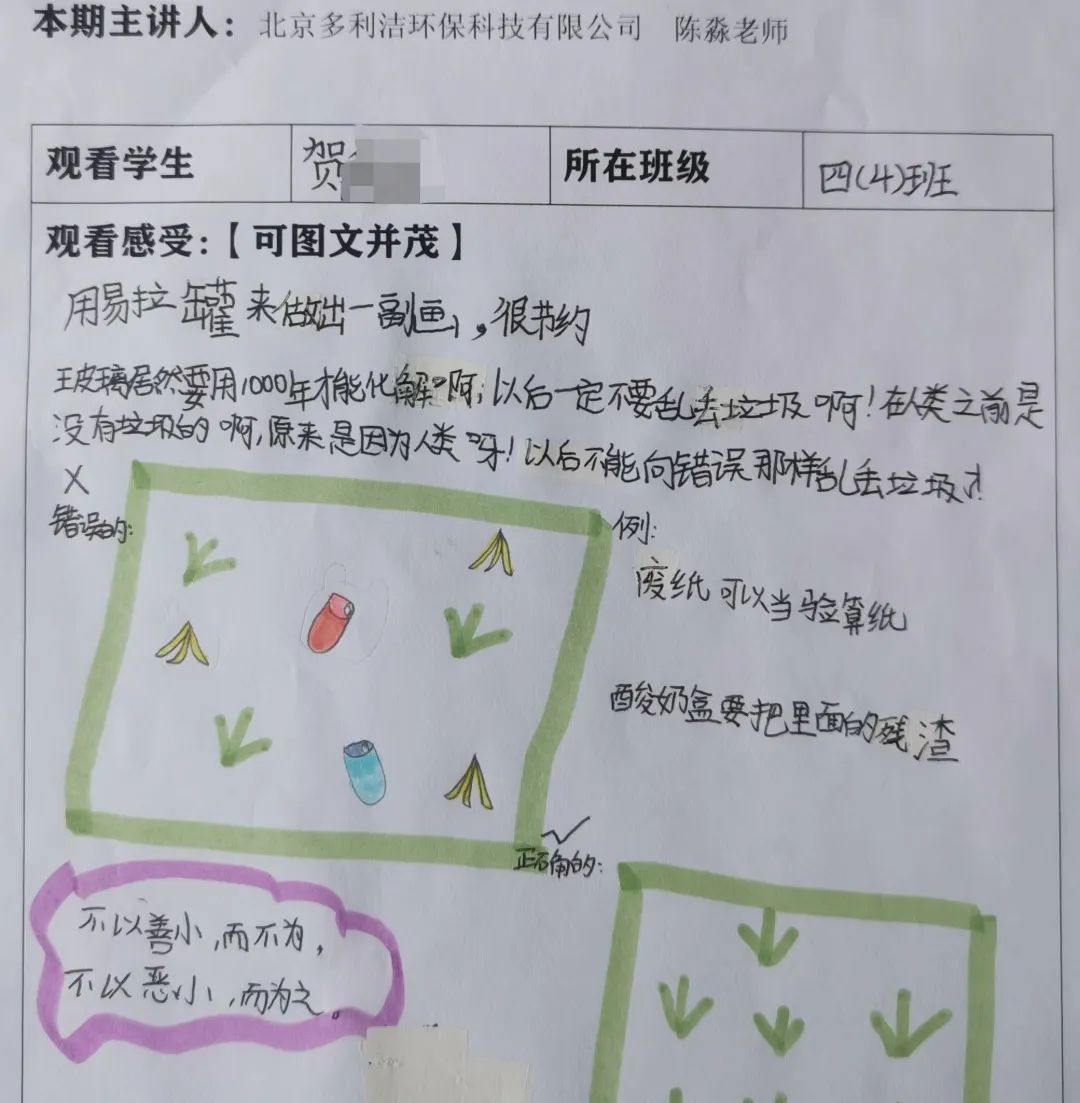 本期主讲人：北京多利洁环保科技有限公司 陈淼老师
观看学生 贺 所在班级 四(4)班
观看感受：【可图文并茂】
用易拉罐来做出一副画，很节约
玻璃居然要用1000年才能化解啊，以后一定不要乱丢垃圾啊！在人类之前是
没有垃圾的啊，原来是因为人类呀！以后不能向错误那样乱丢垃圾了！
×
错误的：
例：
废纸可以当验算纸
酸奶盒要把里面的残渣
✓
正确的：
不以善小，而不为，
不以恶小，而为之。